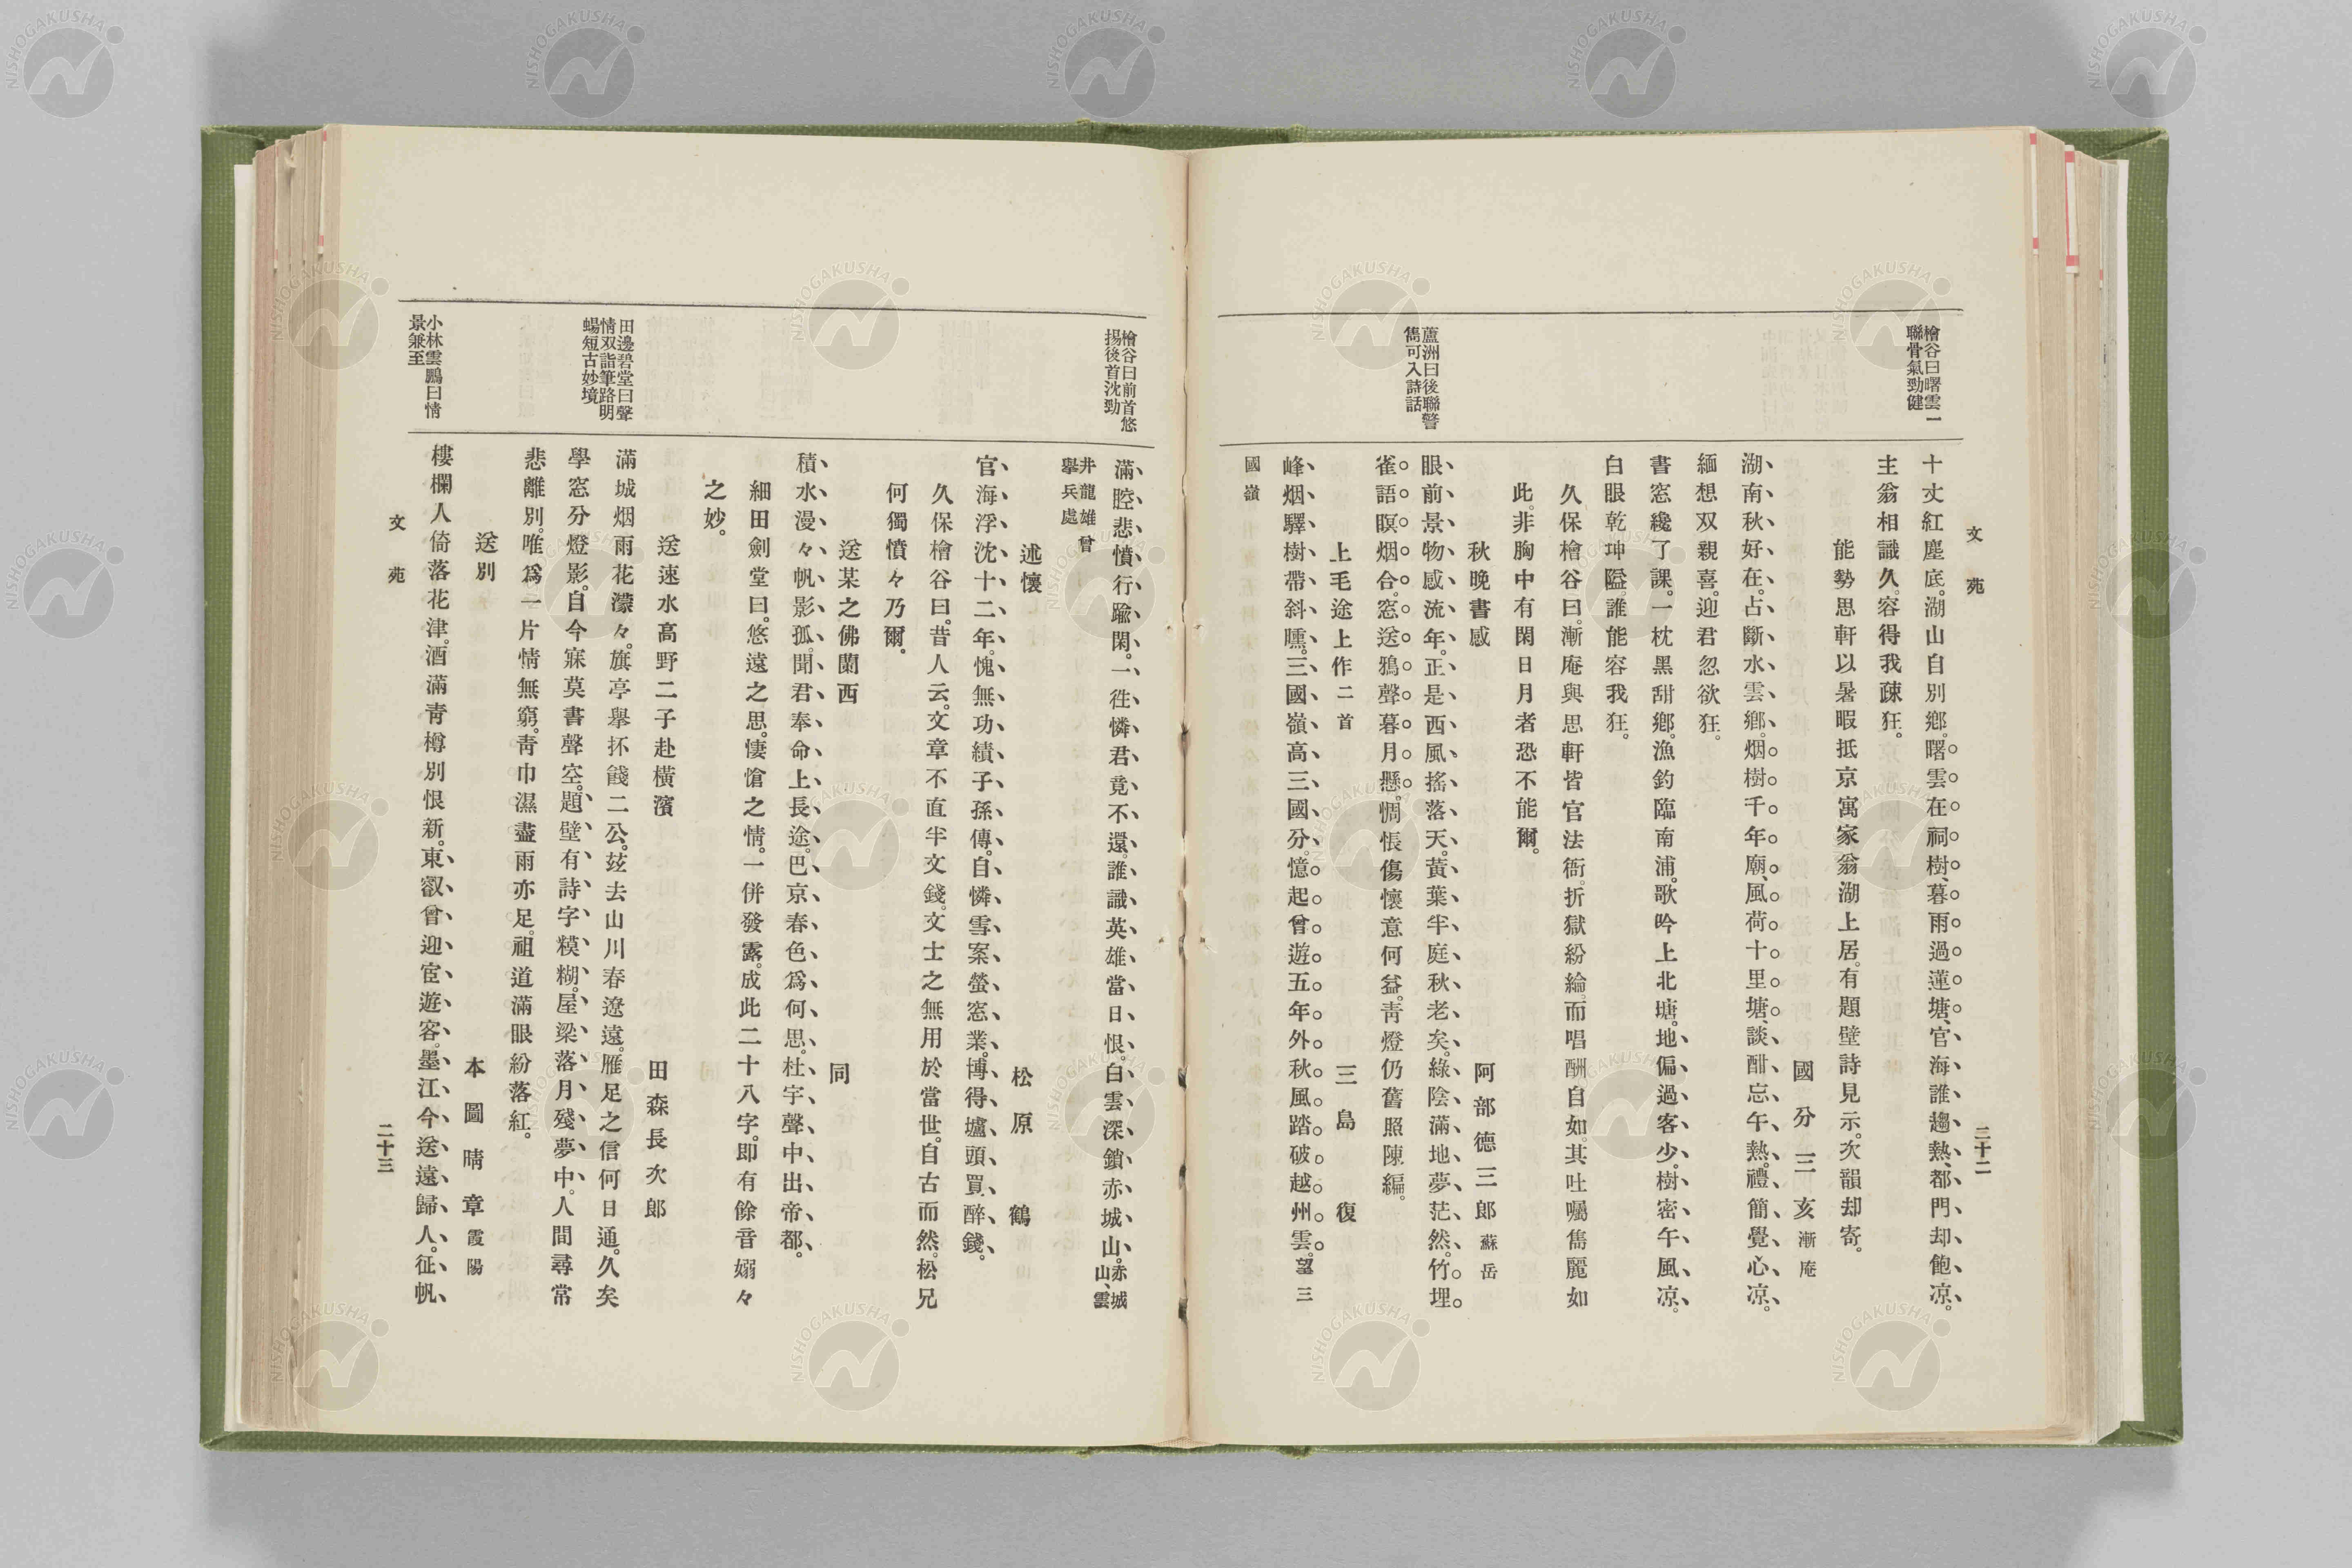 文苑
二十二
檜谷曰曙雲一
聯骨氣勁健
十丈紅塵底。湖山自別鄉。曙雲在祠樹、暮雨過蓮塘、官海誰趨熱、都門却飽凉。
主翁相識久。容得我疎狂。
能勢思軒以暑暇抵京寓家翁湖上居。有題壁詩見示。次韻却寄。
國分三亥漸庵
湖南秋好在。占斷水雲鄉。烟樹千年廟。風荷十里塘、談酣忘午熱。禮簡覺心凉。
緬想双親喜。迎君忽欲狂。
書窓纔了課。一枕黑甜鄉。漁釣臨南浦。歌吟上北塘。地偏過客少。樹密午風凉。
白眼乾坤隘。誰能容我狂。
久保檜谷曰。漸庵與思軒皆官法衙。折獄紛綸。而唱酬自如。其吐囑雋麗如
此。非胸中有閑日月者恐不能爾。
秋晚書感
阿部德三郎蘇岳
蘆洲曰後聯警
雋可入詩話
眼前景物感流年。正是西風搖落天。黃葉半庭秋老矣。綠陰滿地夢茫然。竹埋
雀語暝烟合。窓送鴉聲暮月懸。惆悵傷懷意何益。靑燈仍舊照陳編。
上毛途上作二首
三島復
峰烟驛樹帶斜曛。三國嶺高三國分。憶起曾遊五年外。秋風踏破越州雲。望三
國嶺
檜谷曰前首悠
揚後首沈勁
滿腔悲憤行踰閑。一徃憐君竟不還。誰識英雄當日恨。白雲深鎖赤城山。赤城山、雲
井龍雄曾
擧兵處
述懷
松原鶴
官海浮沈十二年。愧無功績子孫傳。自憐雪案螢窓業。博得壚頭買醉錢。
久保檜谷曰。昔人云。文章不直半文錢。文士之無用於當世。自古而然。松兄
何獨憤々乃爾。
送某之佛蘭西
同
積水漫々帆影孤。聞君奉命上長途。巴京春色爲何思。杜宇聲中出帝都。
細田劍堂曰。悠遠之思。悽愴之情。一併發露。成此二十八字。卽有餘音嫋々
之妙。
送速水高野二子赴橫濱
田森長次郎
田邊碧堂曰聲
情双詣筆路明
蜴短古妙境
滿城烟雨花濛々。旗亭擧抔餞二公。玆去山川春遼遠。雁足之信何日通。久矣
學窓分燈影。自今寐莫書聲空。題壁有詩字糢糊。屋梁落月殘夢中。人間尋常
悲離別。唯爲一片情無窮。靑巾濕盡雨亦足。祖道滿眼紛落紅。
送別
本圖晴章霞陽
小林雲鵬曰情
景兼至
樓欄人倚落花津。酒滿靑樽別恨新。東叡曾迎宦遊客。墨江今送遠歸人。征帆
文苑
二十三